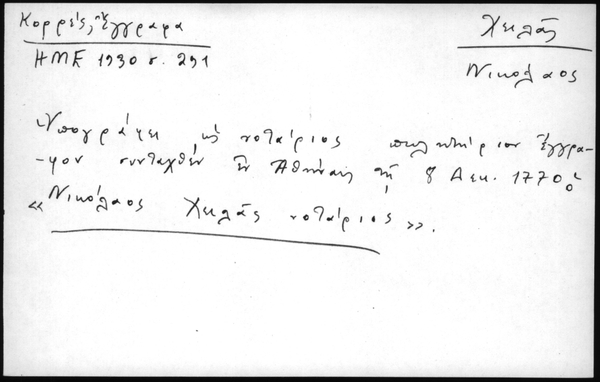 Κορρές, Ἔγγραφα
ΗΜΕ 1930 σ. 291
Χειλᾶς
Νικόλαος
Ὑπογράφει ὡς νοτάριος πωλητήριον ἔγγρα-
-φον συνταχθὲν ἐν Ἀθήναις τῇ 8 Δεκ. 1770
« Νικόλαος Χειλᾶς νοτάριος ».